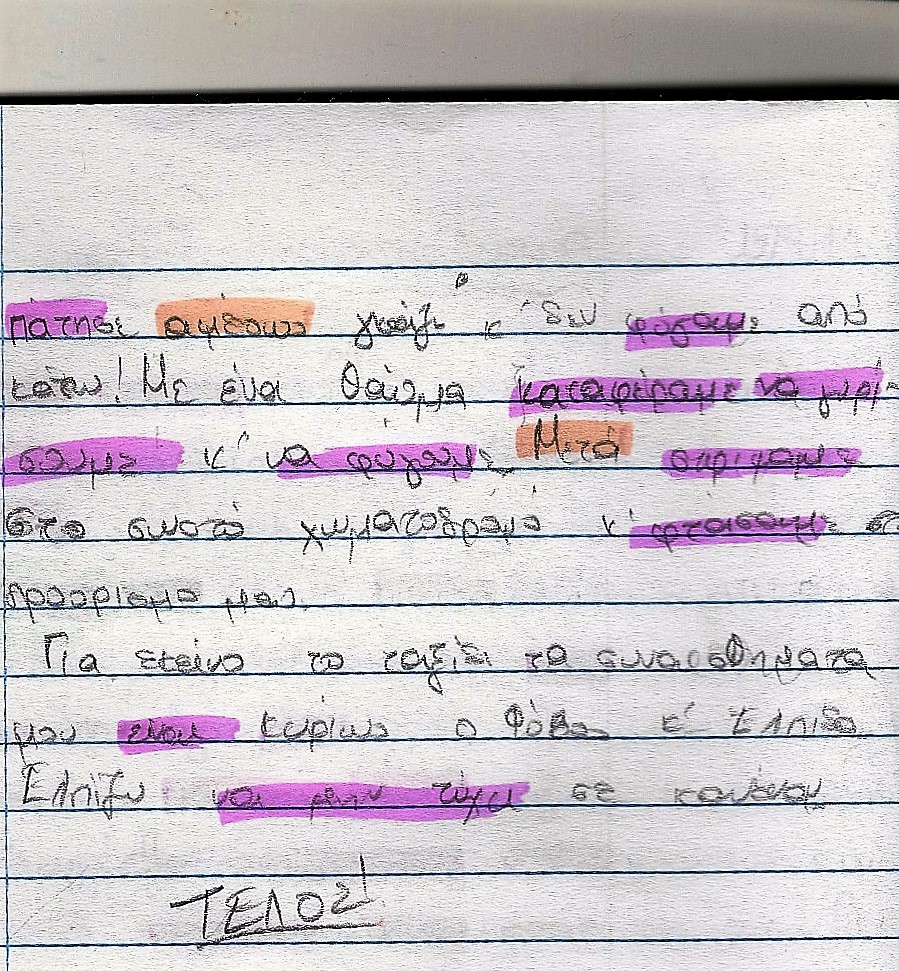 πάτησε αμέσως γκάζι κ' δεν φύγαμε από
κάτω! Με ένα θαύμα καταφέραμε να γυρί-
σουμε κ' να φύγουμε Μετά στρίψαμε
στο σωστό χωματόδρομό κ' φτάσαμε στ
προορισμο μας.
Για εκείνο το ταξίδι τα συναισθηματα
μου είναι κυρίως ο Φόβος κ' Ελπίδα
Ελπίζω να μην τύχει σε κανέναν
ΤΕΛΟΣ!